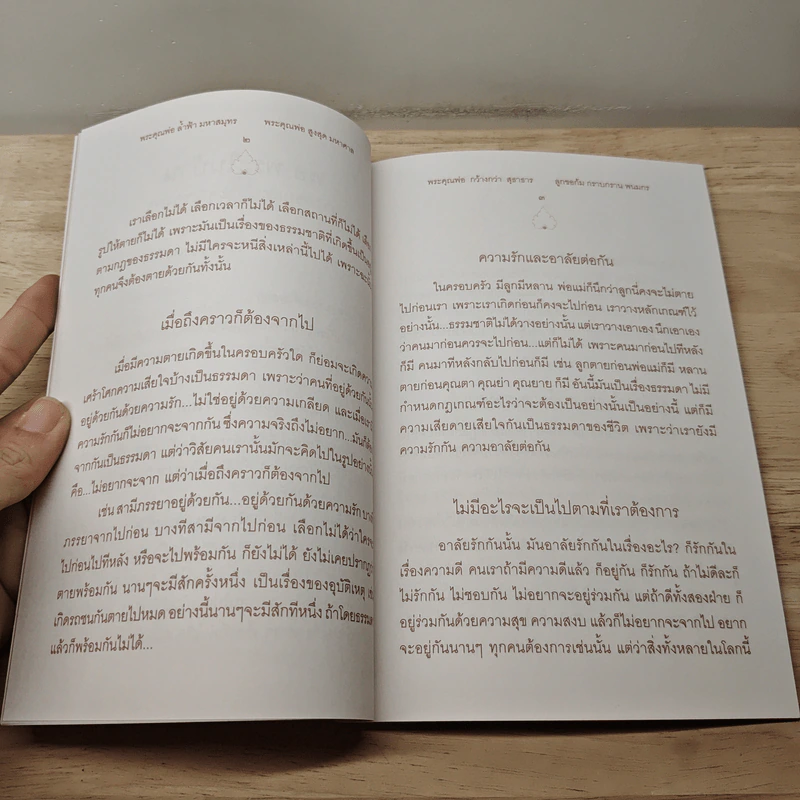 พระคุณพ่อ ล้ำฟ้า มหาสมุทร พระคุณพ่อ สูงสุด มหาศาล
๒
เราเลือกไม่ได้ เลือกเวลาก็ไม่ได้ เลือกสถานที่ก็ไม่ได้
รูปให้ตายก็ไม่ได้ เพราะมันเป็นเรื่องของธรรมชาติที่เกิดขึ้น
ตามกฎของธรรมดา ไม่มีใครจะหนีสิ่งเหล่านี้ไปได้ เพราะฉะนั้น
ทุกคนจึงต้องตายด้วยกันทั้งนั้น
เมื่อถึงคราวก็ต้องจากไป
เมื่อมีความตายเกิดขึ้นในครอบครัวใด ก็ย่อมจะเกิด
เศร้าโศกความเสียใจบ้างเป็นธรรมดา เพราะว่าคนที่อยู่ด้วยกัน
อยู่ด้วยกันด้วยความรัก...ไม่ใช่อยู่ด้วยความเกลียด และเมื่อ
ความรักกันก็ไม่อยากจะจากกัน ซึ่งความจริงถึงไม่อยาก...มันก็
จากกันเป็นธรรมดา แต่ว่าวิสัยคนเรานั้นมักจะคิดไปในรูปอย่าง
คือ...ไม่อยากจะจาก แต่ว่าเมื่อถึงคราวก็ต้องจากไป
เช่น สามีภรรยาอยู่ด้วยกัน...อยู่ด้วยกันด้วยความรัก
ภรรยาจากไปก่อน บางทีสามีจากไปก่อน เลือกไม่ได้ว่าใคร
ไปก่อนไปทีหลัง หรือจะไปพร้อมกัน ก็ยังไม่ได้ ยังไม่เคยปรากฏ
ตายพร้อมกัน นานๆจะมีสักครั้งหนึ่ง เป็นเรื่องของอุบัติเหตุ เช่น
เกิดรถชนกันตายไปหมด อย่างนี้นานๆจะมีสักทีหนึ่ง ถ้าโดยธรรม
แล้วก็พร้อมกันไม่ได้...
พระคุณพ่อ กว้างกว่า สุธาธาร ลูกขอก้ม กราบกราน พนมกร
๓
ความรักและอาลัยต่อกัน
ในครอบครัว มีลูกมีหลาน พ่อแม่ก็นึกว่าลูกนี่คงจะไม่ตาย
ไปก่อนเรา เพราะเราเกิดก่อนก็คงจะไปก่อน เราวางหลักเกณฑ์ไว้
อย่างนั้น...ธรรมชาติไม่ได้วางอย่างนั้น แต่เราวางเอาเอง นึกเอาเอง
ว่าคนมาก่อนควรจะไปก่อน...แต่ก็ไม่ได้ เพราะคนมาก่อนไปทีหลัง
ก็มี คนมาทีหลังกลับไปก่อนก็มี เช่น ลูกตายก่อนพ่อแม่ก็มี หลาน
ตายก่อนคุณตา คุณย่า คุณยาย ก็มี อันนี้มันเป็นเรื่องธรรมดา ไม่มี
กำหนดกฎเกณฑ์อะไรว่าจะต้องเป็นอย่างนั้นเป็นอย่างนี้ แต่ก็มี
ความเสียดายเสียใจกันเป็นธรรมดาของชีวิต เพราะว่าเรายังมี
ความรักกัน ความอาลัยต่อกัน
ไม่มีอะไรจะเป็นไปตามที่เราต้องการ
อาลัยรักกันนั้น มันอาลัยรักกันในเรื่องอะไร? ก็รักกันใน
เรื่องความดี คนเราถ้ามีความดีแล้ว ก็อยู่กัน ก็รักกัน ถ้าไม่ดีละก็
ไม่รักกัน ไม่ชอบกัน ไม่อยากจะอยู่ร่วมกัน แต่ถ้าดีทั้งสองฝ่าย ก็
อยู่ร่วมกันด้วยความสุข ความสงบ แล้วก็ไม่อยากจะจากไป อยาก
จะอยู่กันนานๆ ทุกคนต้องการเช่นนั้น แต่ว่าสิ่งทั้งหลายในโลกนี้